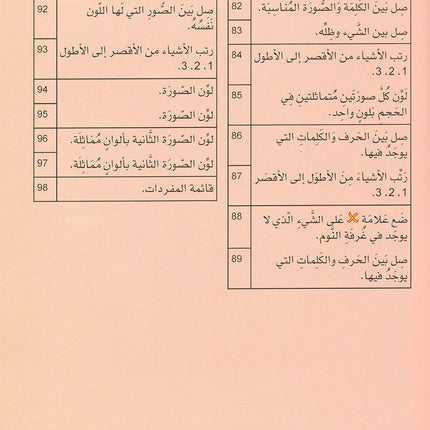 صِل بَينَ الكَلِمَة وَالصُّورَة المُناسِبَة. 82
صِل بين الشَّيء وظِلِّه. 83
رتب الأشياء من الأقصر إلى الأطول 84
1، 2، 3.
لَوِّن كُلَّ صورَتَينِ مُتَماثِلتَينِ فِي 85
الحَجمِ بَلونٍ واحِد.
صِل بَينَ الحَرفِ والكَلِماتِ التي 86
يوجَدُ فيها.
رَتِّب الأشياءَ مِنَ الأطوَل إلى الأقصَر 87
1، 2، 3.
ضَع عَلامَة ✖ عَلى الشَّيءِ الّذي لا 88
يوجَد في غُرفَةِ النَّوم.
صِل بَينَ الحَرفِ والكَلِماتِ التي 89
يوجَدُ فيها.
صِل بَينَ الصُّورِ التي لَها اللَّون 92
نَفسُهُ.
رتب الأشياء من الأقصر إلى الأطول 93
1، 2، 3.
لوِّن الصّورَة. 94
لوِّن الصّورَة. 95
لوِّن الصّورَة الثَّانية بألوانٍ مُمَاثِلَة. 96
لوِّن الصّورَة الثَّانية بألوانٍ مُمَاثِلَة. 97
قائمة المفردات. 98